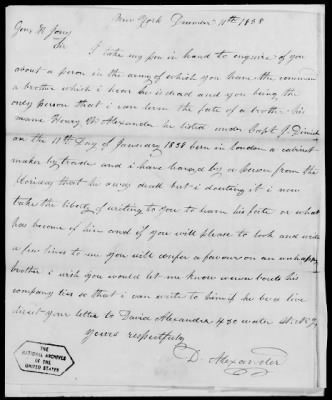 New York December 11th 1838
Genr R Jones
Sir
I take my pen in hand to enquire of you
about a person in the army of which you have the command
a brother which i hear he is dead and you being the
only person that i can lern the fate of a brother his
name Henry W Alexander he listed under Capt J Dimick
on the 11th Day of January 1838 born in london a cabinet
maker by trade and i have heared by a person from the
floriday that he away dead but i douting it i now
take the liberty of writing to you to learn his fate or what
has become of him and if you will please to look and write
a few lines to me you will confer a favour on an unhappy
brother i wish you would let me know
his
company ties so that i can write to him if he be a live
direct your letter to David Alexander 450 water St. N.Y.
Yours respectfully
D. Alexander
THE
NATIONAL ARCHIVES
OF THE
UNITED STATES